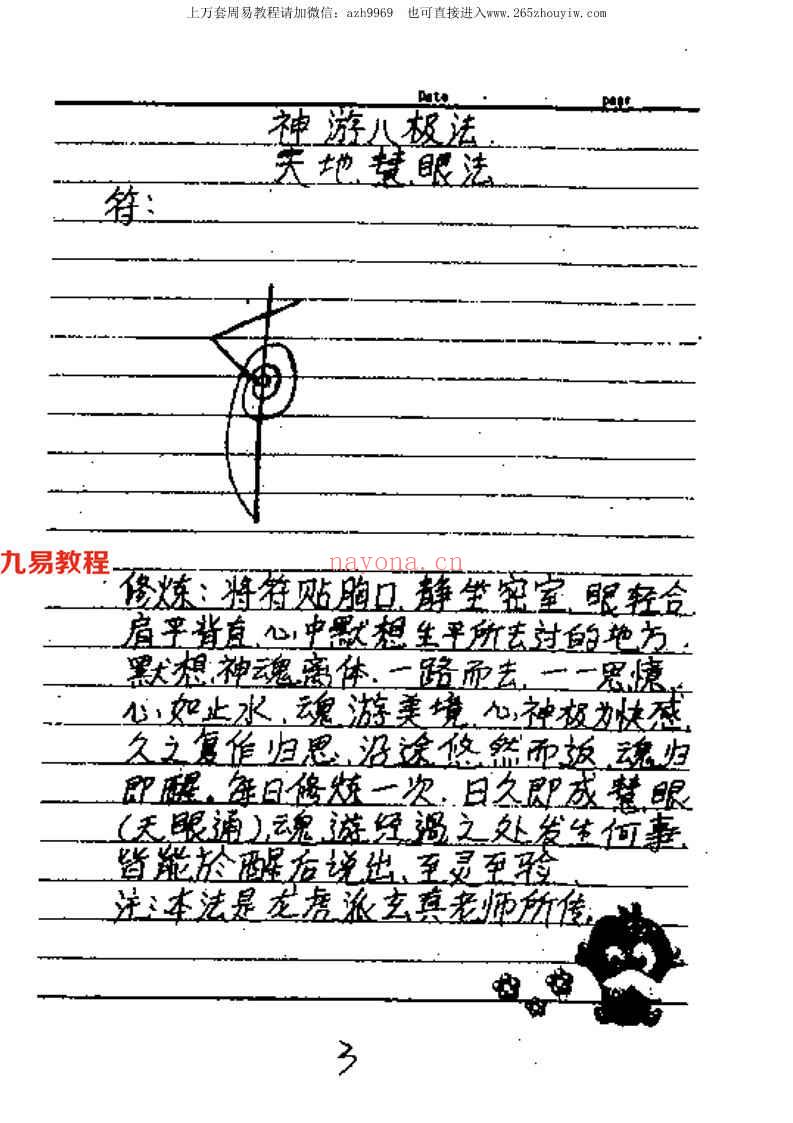 上万套周易教程请加微信：azh9969 也可直接进入www.265zhouyiw.com
Date
page
神游八极法.
天地慧眼法
符：
九易教程
nayona.cn
修炼：将符贴胸口，静坐密室，眼轻合，
肩平背直，心中默想生平所去过的地方，
默想神魂离体，一路而去，一一思憶，
心如止水，魂游美境，心神极为快感，
久之复作归思，沿途悠然而返，魂归
即醒。每日修炼一次，日久即成慧眼
(天眼通)，魂游经過之处发生何事，
皆能於醒后说出，至灵至验．
注：本法是龙虎派玄真老师所传，
3